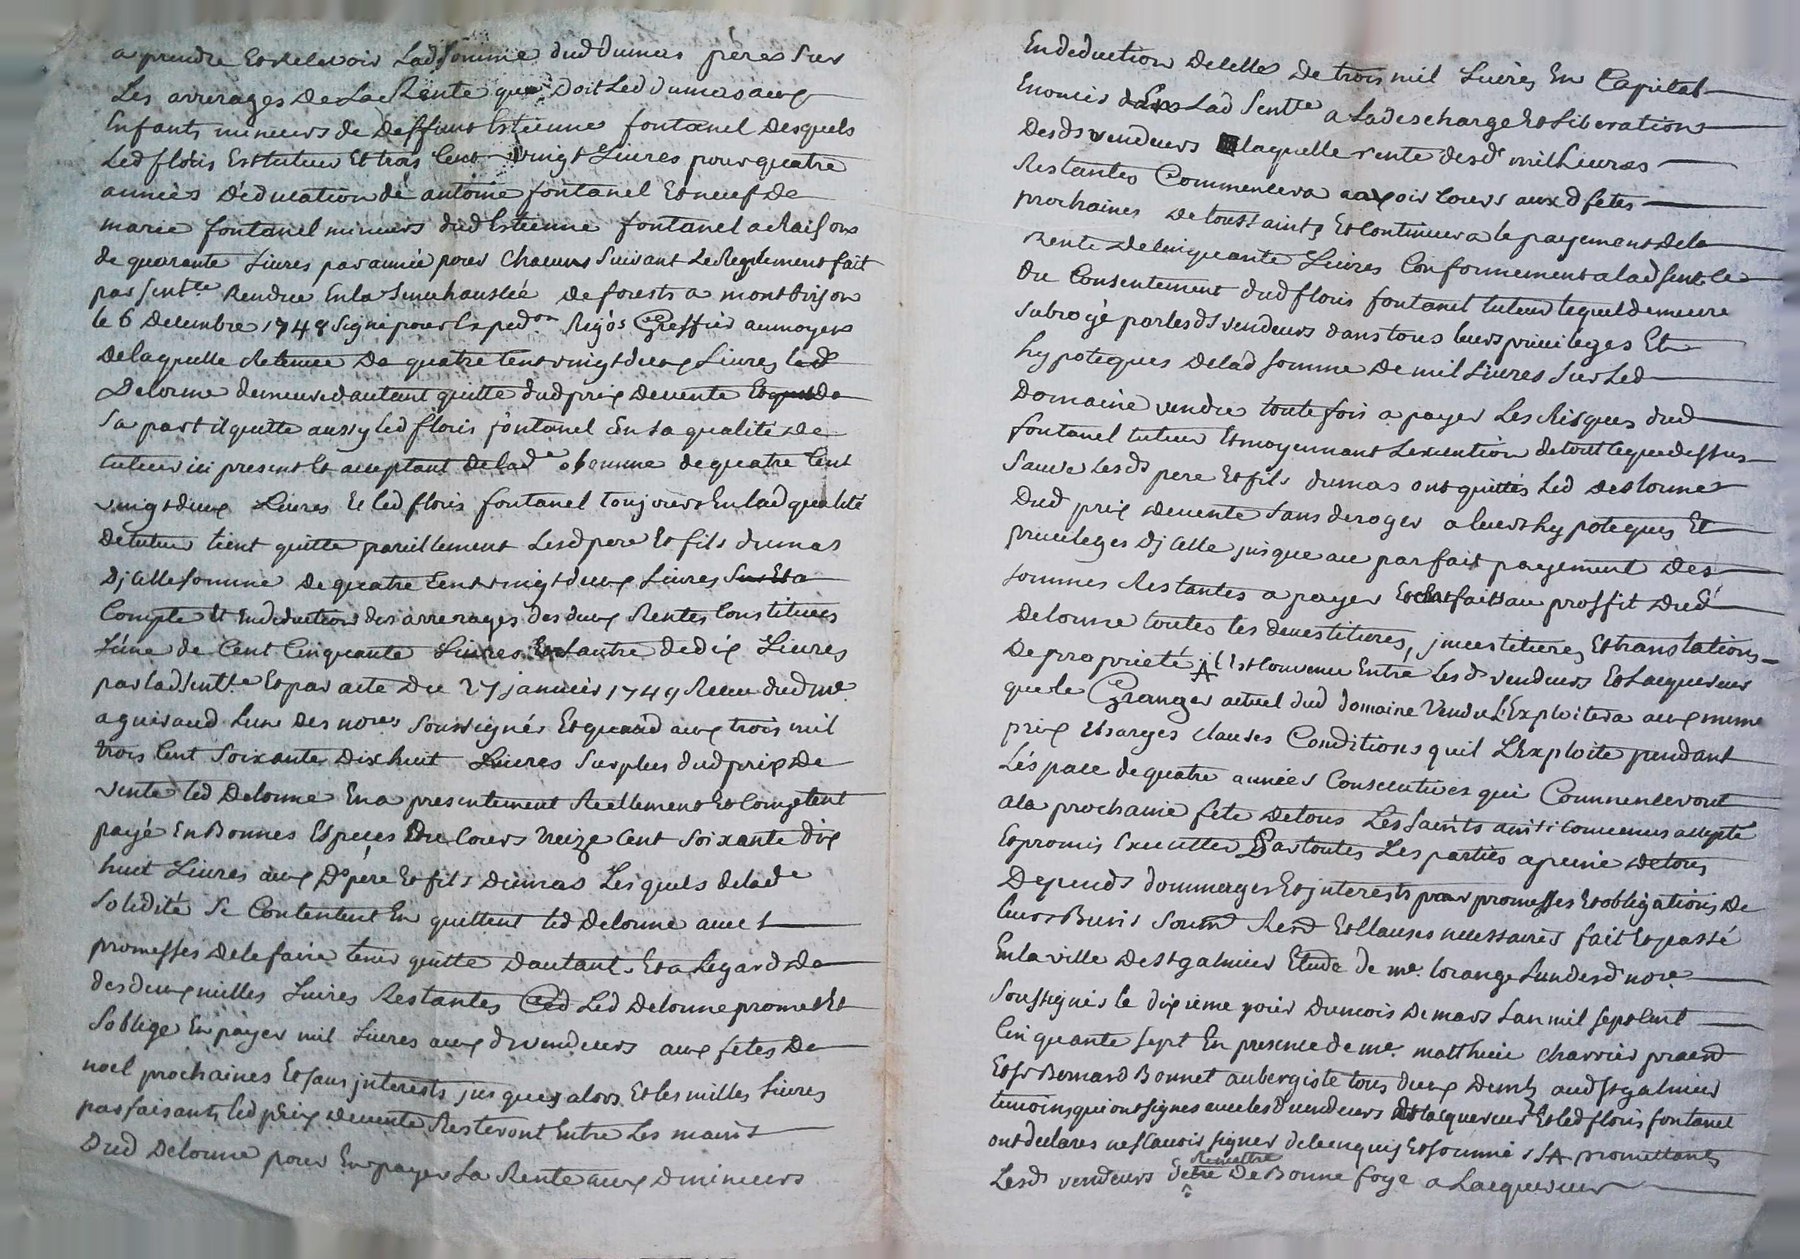 a prendre Et Relevoir Lad Somme dud dumas pere Sur
Les arrerages De La Rente que Doit Led dumas aux
Enfants mineurs de Deffunt Estienne fontanel Desquels
Led floris Est tuteur Et trois Cent vingt Livres pour quatre
années D'éducation de antoine fontanel Et neuf De
marie fontanel mineurs dud Estienne fontanel a Raison
de quarante Livres par année pour Chacun Suivant Le Reglement fait
par Sent.ce Rendue En la Senechaussée De forests a montbrison
le 6 Decembre 1748 Signé pour Exped.on Greffier au moyen
De laquelle Retenue De quatre Cent vingt deux Livres led
Delorme demeure d'autant quitte dud prix De vente De
Sa part il quitte aussy led floris fontanel En sa qualité De
tuteur ici present Et acceptant De lad.e Somme de quatre Cent
vingt deux Livres Et led floris fontanel toujours En lad qualité
De tuteur tient quitte pareillement Lesd pere Et fils dumas
D'jcelle Somme De quatre Cent vingt deux Livres Sur Et a
Compte Et En deduction des arrerages des deux Rentes Constituées
L'une de Cent Cinquante Livres Et Lautre de dix Livres
par lad Sent.ce Et par acte Du 27 janvier 1749 Receu dud me
aguiraud Lun Des no.res Soussignés Et quand aux trois mil
trois Cent Soixante Dix huit Livres Surplus dud prix De
vente led Delorme En a presentement Reellement Et Comptent
payé En Bonnes Especes Du Cours treize Cent Soixante dix
huit Livres aux Ds pere Et fils Dumas Lesquels de lad.e
Solidité Se Contentent En quittent led Delorme avec
promesses De le faire tenir quitte Dautant. Et a Legard De
des deux milles Livres Restantes Led Delorme promet Et
Soblige En payer mil Livres aux ds vendeurs aux fetes De
noel prochaines Et sans jnterests jusques alors Et les milles Livres
parfaisants led prix De vente Resteront Entre Les mains
Dud Delorme pour En payer La Rente aux D mineurs
En deduction De Celles De trois mil Livres En Capital
Enoncés dans Lad Sent.ce a La descharge Et Liberation
Des ds vendeurs laquelle rente desd mil Livres
Restantes Commencera avoir Cours aux d fetes
prochaines De toussaints Et Continuera le payement De la
Rente De Cinquante Livres Conformement a lad Sentce
Du Consentement dud floris fontanel tuteur lequel demeure
Subrogé par lesds vendeurs dans tous leurs privileges Et
hypoteques De lad Somme De mil Livres Sur Led
Domaine vendu toute fois a payer Les Risques dud
fontanel tuteur Et moyennant Lexecution de tout Ce que dessus
Sauve Lesds pere Et fils dumas ont quittés Led Delorme
Dud prix De vente Sans deroger a leurs hypoteques Et
privileges Djcelle jusque au parfait payement Des
Sommes Restantes a payer Et fait au proffit Dud
Delorme toutes les devestitures, jnvestitures Et translations
De proprieté il Est Convenu Entre Lesds vendeurs Et Lacquereur
que le Granger actuel dud Domaine Vendu L'Exploitera aux meme
prix Charges Clauses Conditions quil LExploite pendant
Léspace de quatre années Consecutives qui Commenceront
a la prochaine fete De tous Les Saints ainsi Convenu accepté
Et promis Executter Par toutes Les parties a peine De tous
Depends dommages Et jnterests pour promesses Et obligations De
leurs Biens Soum Renon Et Clauses necessaires fait Et passé
En la ville De St galmier Etude de me. lorange Lun desd no.re
Soussignés le dixieme jour Du mois De mars Lan mil Sept Cent
Cinquante Sept En presence de me. matthieu Charrier praend
Et Sr Bernard Bonnet aubergiste tous deux Demts aud St galmier
temoins qui ont signes avec lesd vendeurs Et lacquereur Et led floris fontanel
ont declares ne Scavoir signer de ce enquis Et Sommés promettants
Remettre
Lesds vendeurs De Bonne foye a Lacquereur